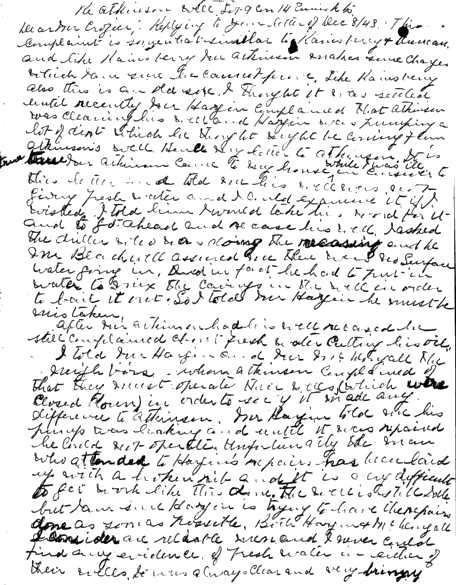 Re Atkinson well Lot 9 Con 14 Enniskillen
Dear Mr Crozier; Replying to your letter of Dec 8/43. This
Complaint is somewhat similar to Hainsberry & Duncan
and like Hainsberry Mr Atkinson makes some charges
which I am sure he cannot prove. Like Hainsberry
also this is an old sore. I thought it was settled
until recently Mr Hargin Complained that Atkinson
was cleaning his well and Hargin was pumping a
lot of dirt which he thought might be coming from
Atkinson's well Hence my letter to Atkinson.
Mr Atkinson came to my house while I was ill in answer to
this letter and told me his well was not
giving fresh water and I could examine it if I
wished. I told him I would take his word for it
and to go ahead and recase his well. I asked
the driller who was doing the recasing and he
Mr Blackwell assured me there was no Surface
water going in. And in fact he had to put in
water to mix the cavings in the well in order
to bail it out. So I told Mr Hargin he must be
mistaken.
After Mr Atkinson had his well recased he
still complained about fresh water cutting his oil.
I told Mr Hargin and Mr the
Neighbors whom Atkinson complained of
that they must operate their wells (which were
Closed down) in order to see if it made any
difference to Atkinson. Mr Hargin told me his
pump was leaking and until it was repaired
he could not operate. Unfortunately the man
who attended to Hargin's repairs has been laid
up with a broken rib and it is very difficult
to get work like this done. The well is still idle
but I am sure Hargin is trying to have the repairs
done as soon as possible. Both Hargin &
I consider are reliable men and I never could
find any evidence of fresh water in either of
their wells, it was always clear and very briny